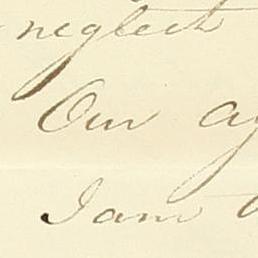 neglect
Our ag
I am